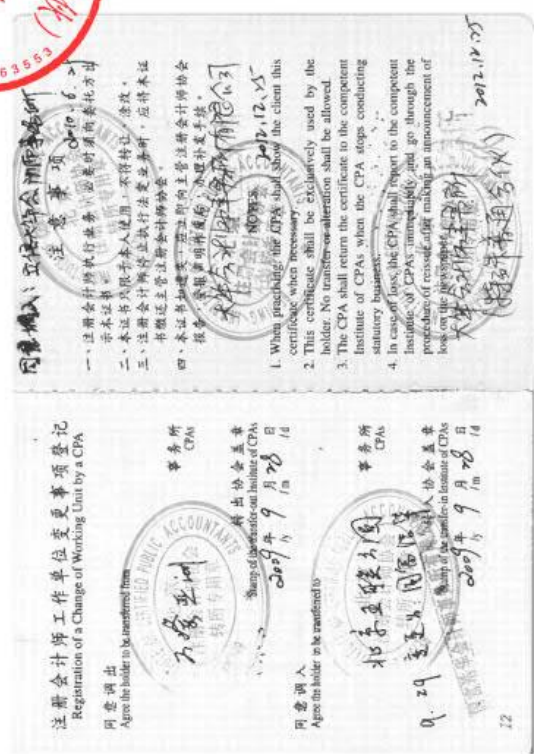 注册会计师工作单位变更事项登记
Registration of a Change of Working Unit by a CPA
同意调出
Agree the holder to be transferred from
事务所
CPAs
CERTIFIED PUBLIC ACCOUNTANTS
转所专用章
转出协会盖章
Stamp of the transfer-out Institute of CPAs
2009年 9 月 28 日
/y /m /d
同意调入
Agree the holder to be transferred to
事务所
CPAs
转入协会盖章
Stamp of the transfer-in Institute of CPAs
2009年 9 月 28 日
/y /m /d
9.29
12
同意调入:立信大华会计师事务所
2010.6.21
注意事项
一、注册会计师执行业务,必要时须向委托方出
示本证书。
二、本证书只限于本人使用,不得转让、涂改。
三、注册会计师停止执行法定业务时,应将本证
书缴还主管注册会计师协会。
四、本证书如遗失,应立即向主管注册会计师协会
报告,登报声明作废后,办理补发手续。
大华会计师事务所有限公司
2012.12.25
NOTES
1. When practising, the CPA shall show the client this
certificate when necessary.
2. This certificate shall be exclusively used by the
holder. No transfer or alteration shall be allowed.
3. The CPA shall return the certificate to the competent
Institute of CPAs when the CPA stops conducting
statutory business.
4. In case of loss, the CPA shall report to the competent
Institute of CPAs immediately and go through the
procedure of reissue after making an announcement of
loss on the newspaper.
大华会计师事务所
(特殊普通合伙)
2012.12.25
63553